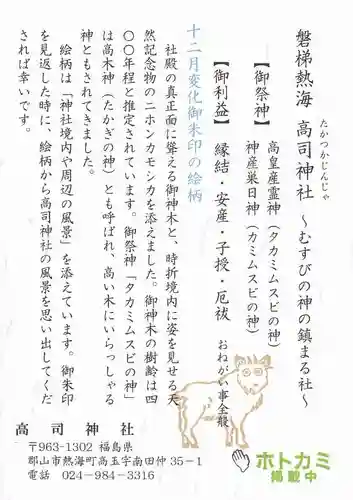 磐梯熱海 高司神社 ~むすびの神の鎮まる社~
たかつかじんじゃ
【御祭神】 高皇産霊神(タカミムスビの神)
神産巣日神(カミムスビの神)
【御利益】 縁結・安産・子授・厄祓 おねがい事全般
十二月変化御朱印の絵柄
社殿の真正面に聳える御神木と、時折境内に姿を見せる天
然記念物のニホンカモシカを添えました。御神木の樹齢は四
〇〇年程と推定されています。御祭神「タカミムスビの神」
は高木神(たかぎの神)とも呼ばれ、高い木にいらっしゃる
神ともされてきました。
絵柄は「神社境内や周辺の風景」を添えています。御朱印
を見返した時に、絵柄から高司神社の風景を思い出してくだ
されば幸いです。
高司神社
〒963-1302 福島県
郡山市熱海町高玉字南田仲35-1
電話 024-984-3316
ホトカミ
掲載中